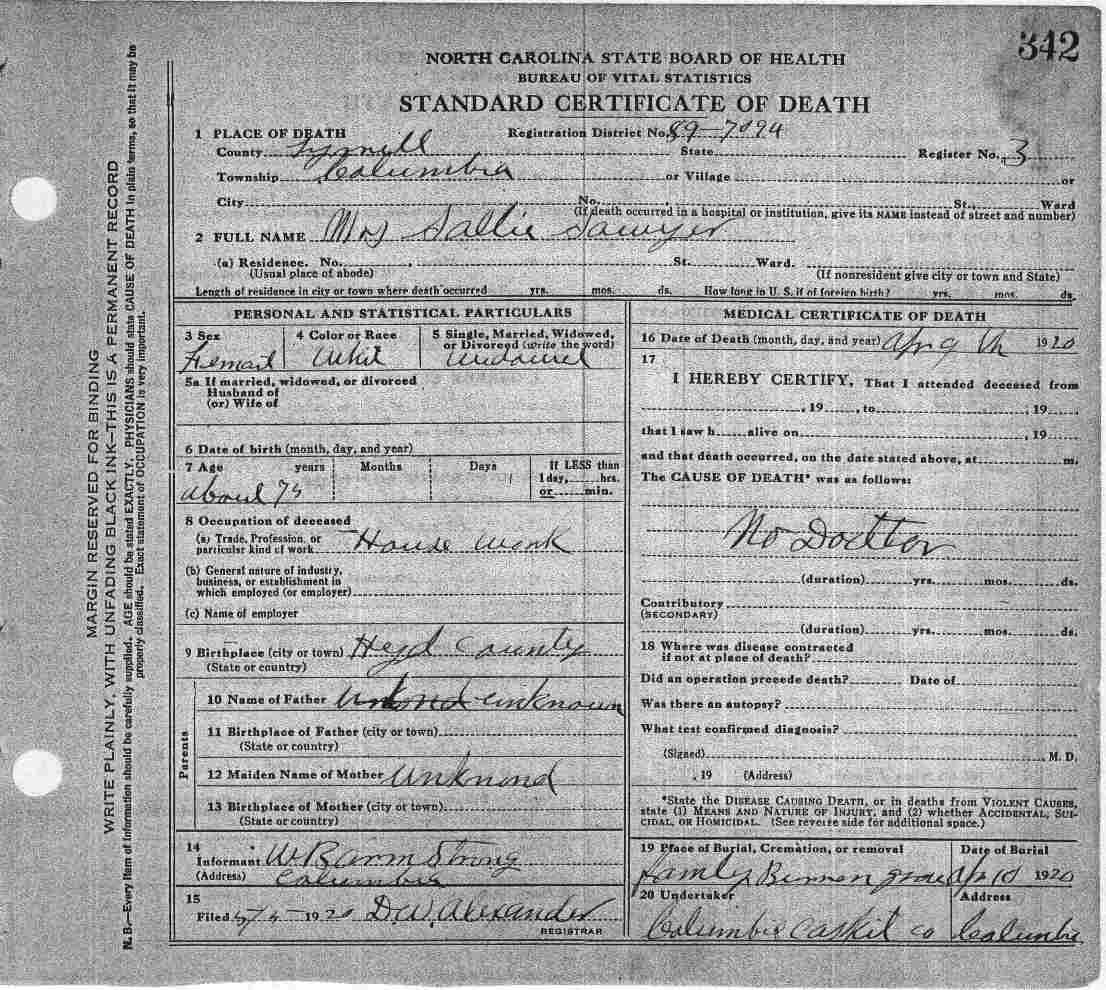 342
NORTH CAROLINA STATE BOARD OF HEALTH
BUREAU OF VITAL STATISTICS
STANDARD CERTIFICATE OF DEATH
1 PLACE OF DEATH Registration District No. 89-7094
County Tyrrell State Register No. 3
Township Columbia or Village or
City No. St., Ward
(If death occurred in a hospital or institution, give its NAME instead of street and number)
2 FULL NAME Mrs Sallie Sawyer
(a) Residence. No. , St. Ward.
(Usual place of abode) (If nonresident give city or town and State)
Length of residence in city or town where death occurred yrs. mos. ds. How long in U. S. if of foreign birth? yrs. mos. ds.
PERSONAL AND STATISTICAL PARTICULARS
3 Sex 4 Color or Race 5 Single, Married, Widowed,
or Divorced (write the word)
5a If married, widowed, or divorced
Husband of
(or) Wife of
6 Date of birth (month, day, and year)
7 Age years Months Days If LESS than
1 day, hrs.
about 75 or min.
8 Occupation of deceased
(a) Trade, Profession, or
particular kind of work House work
(b) General nature of industry,
business, or establishment in
which employed (or employer)
(c) Name of employer
9 Birthplace (city or town) Heyd County
(State or country)
Parents
10 Name of Father unknown
11 Birthplace of Father (city or town)
(State or country)
12 Maiden Name of Mother Unknond
13 Birthplace of Mother (city or town)
(State or country)
14
Informant W R arm Strong
(Address) Columbia
15
Filed 1920 D.W. Alexander
REGISTRAR
MEDICAL CERTIFICATE OF DEATH
16 Date of Death (month, day, and year) Apr 9 th 1920
17
I HEREBY CERTIFY, That I attended deceased from
, 19 , to , 19
that I saw h alive on , 19
and that death occurred, on the date stated above, at m.
The CAUSE OF DEATH* was as follows:
No Docttor
(duration) yrs. mos. ds.
Contributory
(SECONDARY)
(duration) yrs. mos. ds.
18 Where was disease contracted
if not at place of death?
Did an operation precede death? Date of
Was there an autopsy?
What test confirmed diagnosis?
(Signed) M. D.
, 19 (Address)
*State the DISEASE CAUSING DEATH, or in deaths from VIOLENT CAUSES,
state (1) MEANS AND NATURE OF INJURY, and (2) whether ACCIDENTAL, SUI-
CIDAL, OR HOMICIDAL. (See reverse side for additional space.)
19 Place of Burial, Cremation, or removal Date of Burial
famly Apr 10 1920
20 Undertaker Address
Columbia Caskit co Columbia
MARGIN RESERVED FOR BINDING
WRITE PLAINLY, WITH UNFADING BLACK INK—THIS IS A PERMANENT RECORD
N. B.—Every item of information should be carefully supplied. AGE should be stated EXACTLY. PHYSICIANS should state CAUSE OF DEATH in plain terms, so that it may be
properly classified. Exact statement of OCCUPATION is very important.